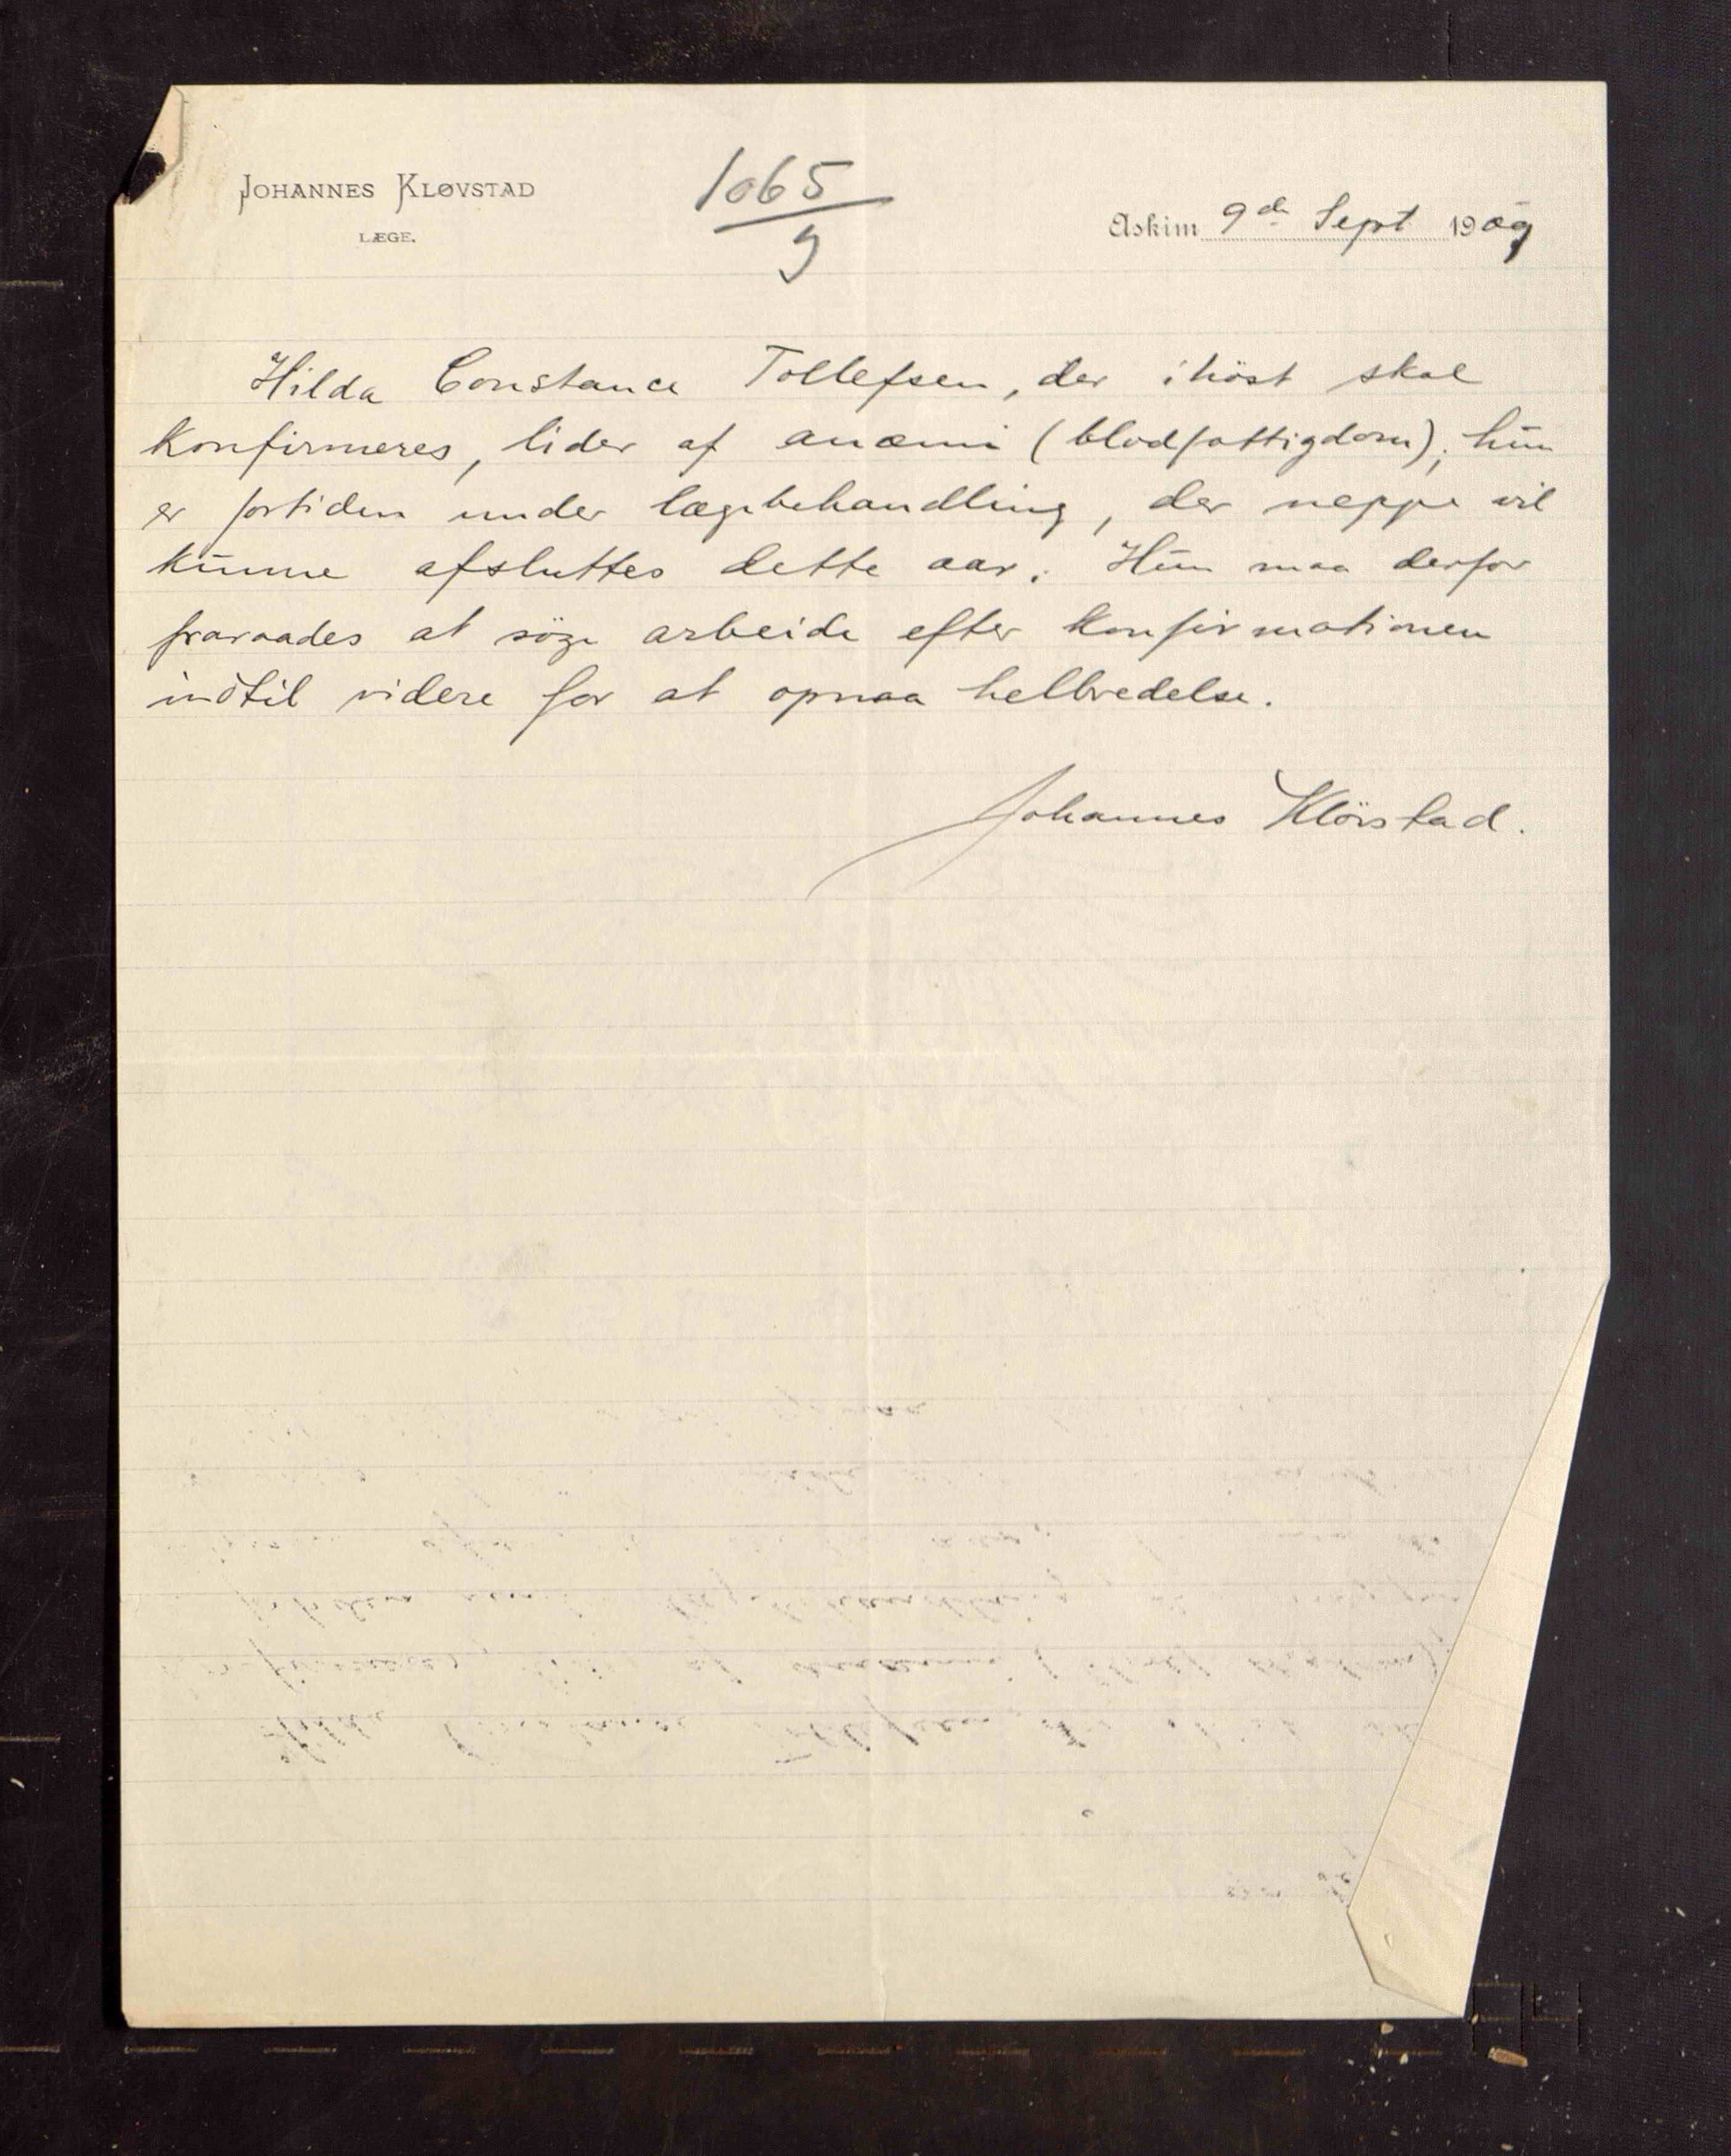 JOHANNES KLØVSTAD
LÆGE.
1065
9
Askim 9de Sept 1909
Hilda Constance Tollefsen, der ihöst skal
konfirmeres, lider af anæmi (blodfattigdom); hun
er fortiden under lægebehandling, der neppe vil
kunne afsluttes dette aar. Hun maa derfor
fraraades at söge arbeide efter konfirmationen
indtil videre for at opnaa helbredelse.
Johannes Klövstad.